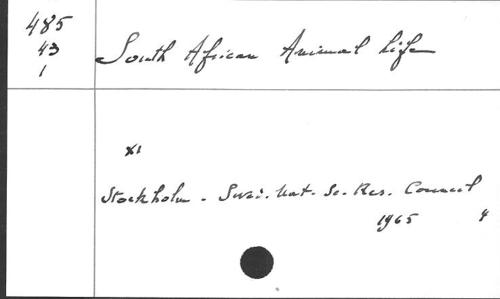 485
43
1
South African Animal Life
XI
Stockholm - Swed. Nat. Sc. Res. Council
1965 4